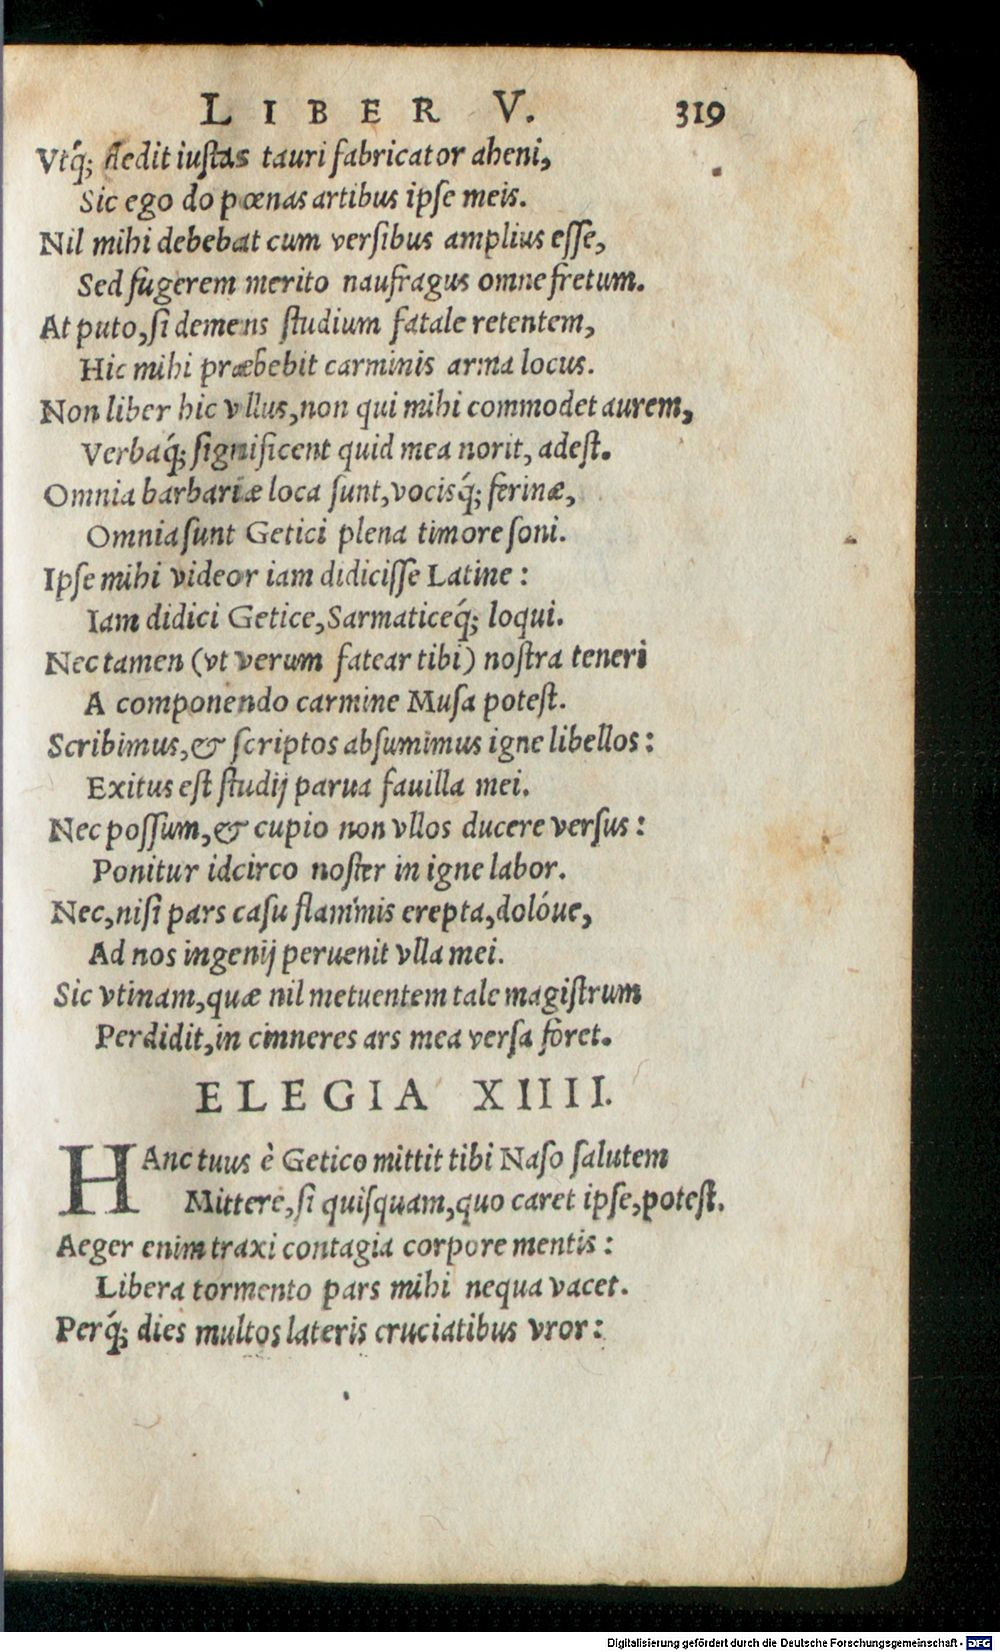 LIBER V. 319
Vtq́; dedit iustas tauri fabricator aheni,
Sic ego do pœnas artibus ipse meis.
Nil mihi debebat cum versibus amplius esse,
Sed fugerem merito naufragus omne fretum.
At puto, si demens studium fatale retentem,
Hic mihi præbebit carminis arma locus.
Non liber hic vllus, non qui mihi commodet aurem,
Verbaq́; significent quid mea norit, adest.
Omnia barbariæ loca sunt, vocisq́; ferinæ,
Omnia sunt Getici plena timore soni.
Ipse mihi videor iam didicisse Latine:
Iam didici Getice, Sarmaticeq́; loqui.
Nec tamen (vt verum fatear tibi) nostra teneri
A componendo carmine Musa potest.
Scribimus, & scriptos absumimus igne libellos:
Exitus est studij parua fauilla mei.
Nec possum, & cupio non vllos ducere versus:
Ponitur idcirco noster in igne labor.
Nec, nisi pars casu flammis erepta, dolóue,
Ad nos ingenij peruenit vlla mei.
Sic vtinam, quæ nil metuentem tale magistrum
Perdidit, in cinneres ars mea versa foret.
ELEGIA XIIII.
HAnc tuus è Getico mittit tibi Naso salutem
Mittere, si quisquam, quo caret ipse, potest.
Aeger enim traxi contagia corpore mentis:
Libera tormento pars mihi nequa vacet.
Perq́; dies multos lateris cruciatibus vror:
Digitalisierung gefördert durch die Deutsche Forschungsgemeinschaft - DFG